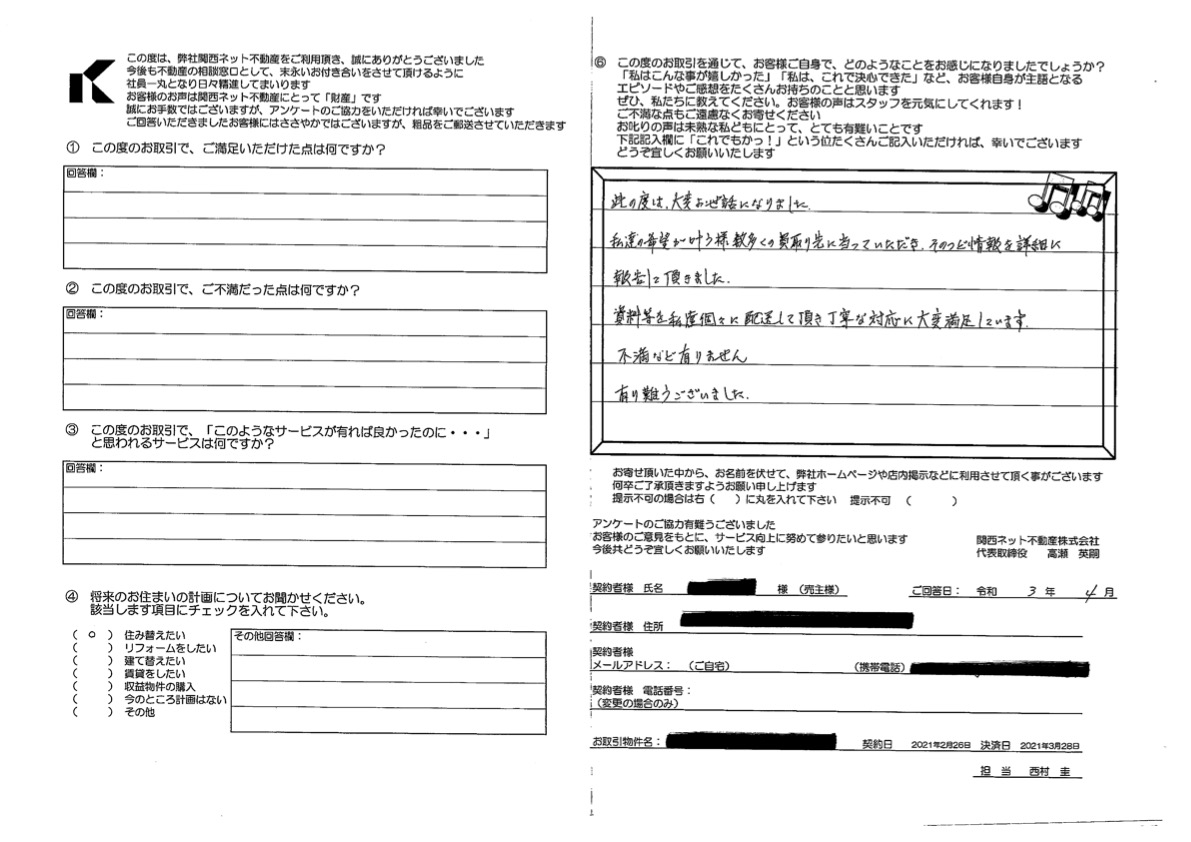 この度は、弊社関西ネット不動産をご利用頂き、誠にありがとうございました
今後も不動産の相談窓口として、末永いお付き合いをさせて頂けるように
社員一丸となり日々精進してまいります
お客様のお声は関西ネット不動産にとって「財産」です
誠にお手数ではございますが、アンケートのご協力をいただければ幸いでございます
ご回答いただきましたお客様にはささやかではございますが、粗品をご郵送させていただきます
① この度のお取引で、ご満足いただけた点は何ですか？
回答欄：
② この度のお取引で、ご不満だった点は何ですか？
回答欄：
③ この度のお取引で、「このようなサービスが有れば良かったのに・・・」
と思われるサービスは何ですか？
回答欄：
④ 将来のお住まいの計画についてお聞かせください。
該当します項目にチェックを入れて下さい。
（ ○ ） 住み替えたい
（ ） リフォームをしたい
（ ） 建て替えたい
（ ） 賃貸をしたい
（ ） 収益物件の購入
（ ） 今のところ計画はない
（ ） その他
その他回答欄：
⑥ この度のお取引を通じて、お客様ご自身で、どのようなことをお感じになりましたでしょうか？
「私はこんな事が嬉しかった」「私は、これで決心できた」など、お客様自身が主語となる
エピソードやご感想をたくさんお持ちのことと思います
ぜひ、私たちに教えてください。お客様の声はスタッフを元気にしてくれます！
ご不満な点もご遠慮なくお寄せください
お叱りの声は未熟な私どもにとって、とても有難いことです
下記記入欄に「これでもかっ！」という位たくさんご記入いただければ、幸いでございます
どうぞ宜しくお願いいたします
此の度は、大変お世話になりました。
私達の希望が叶う様数多くの買取り先に当っていただき、そのつど情報を詳細に
報告して頂きました。
資料等を私達個々に配送して頂き丁寧な対応に大変満足しています。
不満など有りません
有り難うございました。
お寄せ頂いた中から、お名前を伏せて、弊社ホームページや店内掲示などに利用させて頂く事がございます
何卒ご了承頂きますようお願い申し上げます
提示不可の場合は右（ ）に丸を入れて下さい 提示不可 （ ）
アンケートのご協力有難うございました
お客様のご意見をもとに、サービス向上に努めて参りたいと思います
今後共どうぞ宜しくお願いいたします
関西ネット不動産株式会社
代表取締役 高瀬 英嗣
契約者様 氏名 様 （売主様） ご回答日： 令和 3 年 4 月
契約者様 住所
契約者様
メールアドレス： （ご自宅） （携帯電話）
契約者様 電話番号：
（変更の場合のみ）
お取引物件名： 契約日 2021年2月26日 決済日 2021年3月28日
担 当 西村 圭